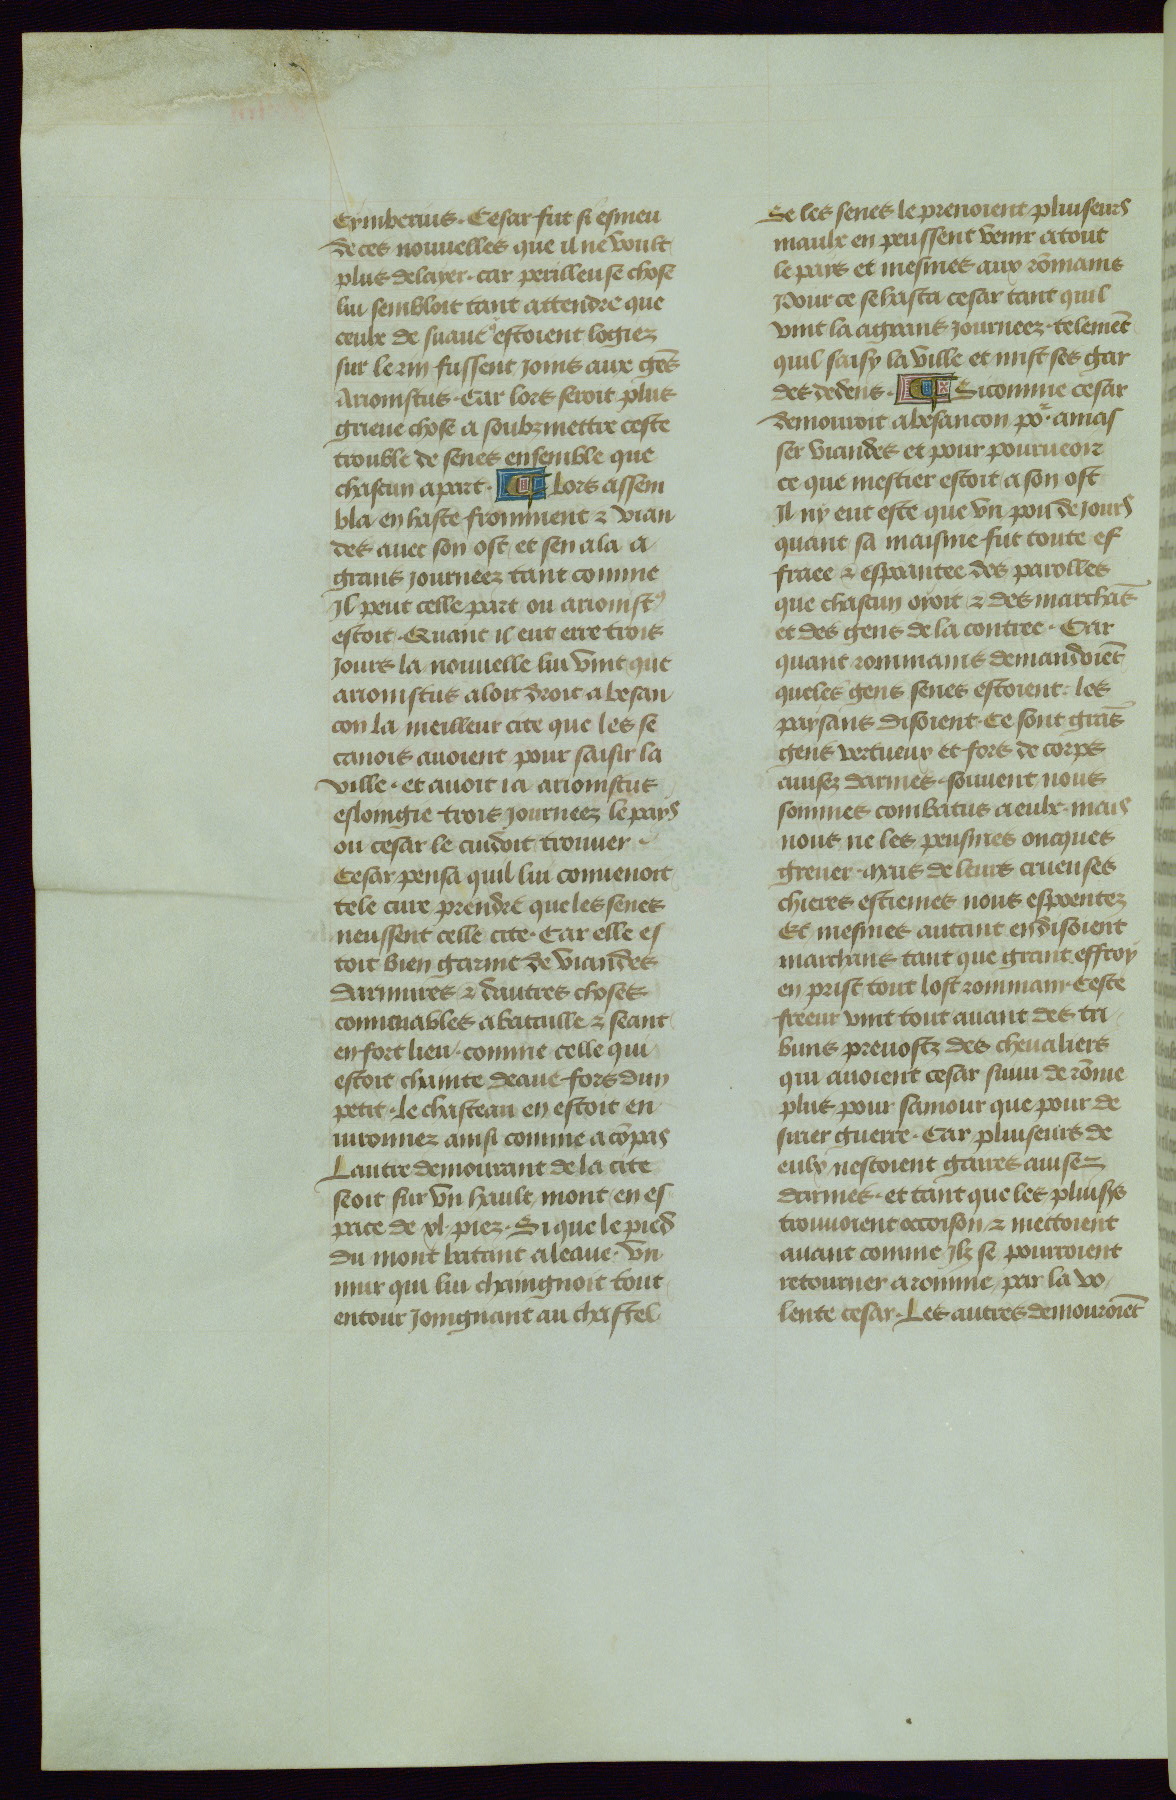 Cymberius. Cesar fut si esmeu
de ces nouuelles que il ne voult
plus delayer. car perilleuse chose
lui sembloit tant attendre que
ceulx de suaue estoient logiez
sur le rin fussent joins aux ge͂s
Arionistus. Car lors seroit plus
grieue chose a soubzmettre ceste
trouble de senes ensemble que
chascun a part. Lors assem
bla en haste fromment ⁊ vian
des auec son ost et sen ala a
grans journeez tant comme
Il peut celle part ou arionistꝰ
estoit. Quant il eut erre trois
jours la nouuelle lui vint que
arionistus aloit droit a besan
con la meilleur cite que les se
canois auoient pour saisir la
ville. et auoit ia arionistus
eslongie trois journeez le pays
ou cesar le cuidoit trouuer.
Cesar pensa quil lui conuenoit
tele cure prendre que les senes
neussent celle cite. Car elle es
toit bien garnie de viandes
darmures ⁊ dautres choses
conuenables a bataille ⁊ seant
en fort lieu. comme celle qui
estoit chainte deaue fors dun
petit. Le chasteau en estoit en
uironnez ainsi comme a co͂pas
Lautre demourant de la cite
seoit sur vn hault mont en es
pace de xl. piez. Si que le pied
du mont batant a leaue. vn
mur qui lui chaingnoit tout
entour joingnant au chastel
Se les senes le prenoient pluiseurs
maulx en peussent venir a tout
le pays et mesmes aux ro͂mains
Pour ce se hasta cesar tant quil
vint la a grans journeez. teleme͂t
quil saisy la ville et mist ses gar
des dedens. Si comme cesar
demouroit a besancon poᷣ. amas
ser viandes et pour pourueoir
ce que mestier estoit a son ost
Il ny eut este que vn pou de jours
quant sa maisnie fut toute ef
fraee ⁊ espoantee des parolles
que chascun oyoit ⁊ des marcha͂s
et des gens de la contree. Car
quant rommains demandoie͂t
queles gens senes estoient. les
paysans disoient. Ce sont gra͂s
gens vertueux et fors de corps
auisez darmes. souuent nous
sommes combatus a eulx. mais
nous ne les peusmes oncques
greuer. Mais de leurs crueuses
chieres estiemes nous espoentez
Et mesmes autant en disoient
marchans tant que grant effroy
en prist tout lost rommain. Ceste
freeur vint tout auant des tri
buns preuostz des cheualiers
qui auoient cesar suiui de ro͂me
plus pour samour que pour de
sirier guerre. Car pluiseurs de
eulx nestoient gaires auisez
darmes. et tant que les pluisꝰs
trouuoient occoison ⁊ mettoient
auant comme Ilz se pourroient
retourner a romme par la vo
lente cesar. Les autres demouroie͂t